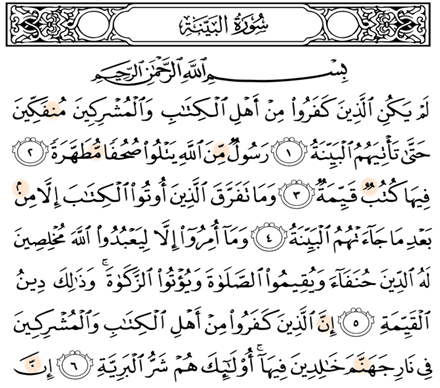 سُورَةُ الْبَيِّنَةِ
بِسْمِ اللَّهِ الرَّحْمَٰنِ الرَّحِيمِ
لَمْ يَكُنِ الَّذِينَ كَفَرُوا مِنْ أَهْلِ الْكِتَابِ وَالْمُشْرِكِينَ مُنفَكِّينَ
حَتَّىٰ تَأْتِيَهُمُ الْبَيِّنَةُ ١ رَسُولٌ مِّنَ اللَّهِ يَتْلُوا صُحُفًا مُّطَهَّرَةً ٢
فِيهَا كُتُبٌ قَيِّمَةٌ ٣ وَمَا تَفَرَّقَ الَّذِينَ أُوتُوا الْكِتَابَ إِلَّا مِنۢ
بَعْدِ مَا جَاءَتْهُمُ الْبَيِّنَةُ ٤ وَمَا أُمِرُوا إِلَّا لِيَعْبُدُوا اللَّهَ مُخْلِصِينَ
لَهُ الدِّينَ حُنَفَاءَ وَيُقِيمُوا الصَّلَوٰةَ وَيُؤْتُوا الزَّكَوٰةَ ۚ وَذَٰلِكَ دِينُ
الْقَيِّمَةِ ٥ إِنَّ الَّذِينَ كَفَرُوا مِنْ أَهْلِ الْكِتَابِ وَالْمُشْرِكِينَ
فِي نَارِ جَهَنَّمَ خَالِدِينَ فِيهَا ۚ أُولَٰئِكَ هُمْ شَرُّ الْبَرِيَّةِ ٦ إِنَّ